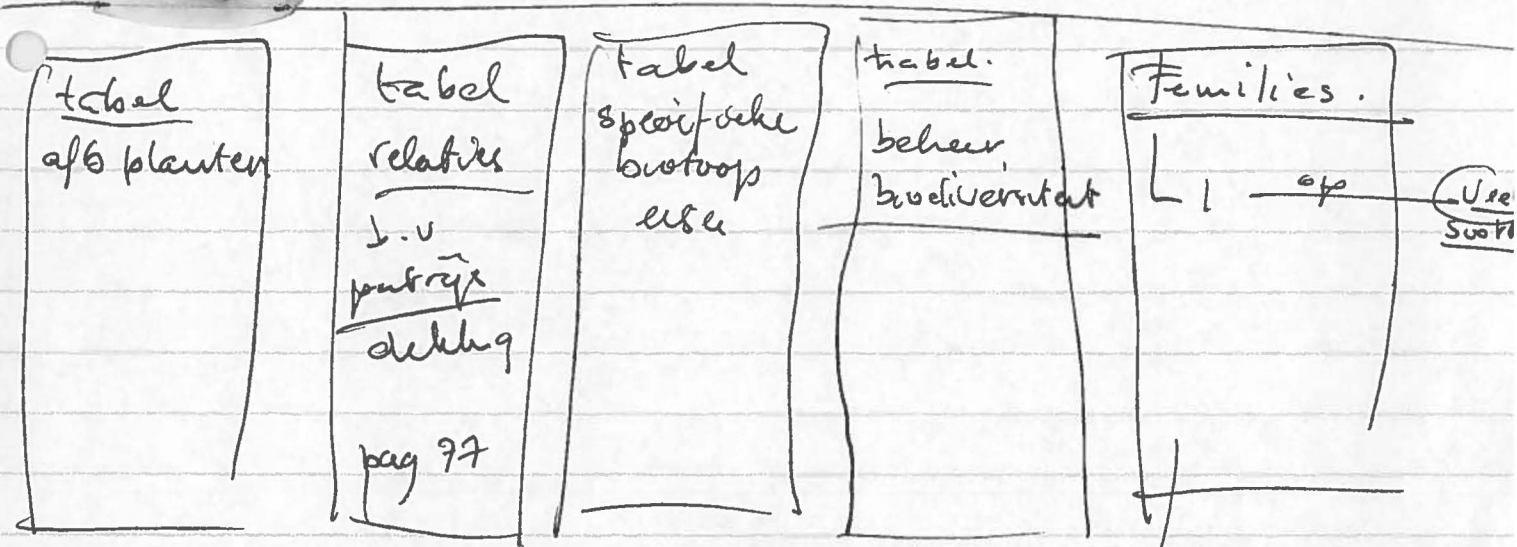 tabel
afb planten
tabel
relaties
patrijs
dekking
pag 77
tabel
specifieke
biotoop
eisen
tabel.
beheer,
biodiversiteit
Families.
op